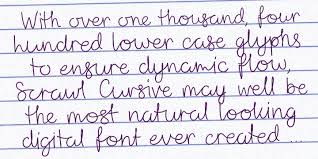 With over one thousand, four
hundred lower case glyphs
to ensure dynamic flow,
Scrawl Cursive may well be
the most natural looking
digital font ever created ...